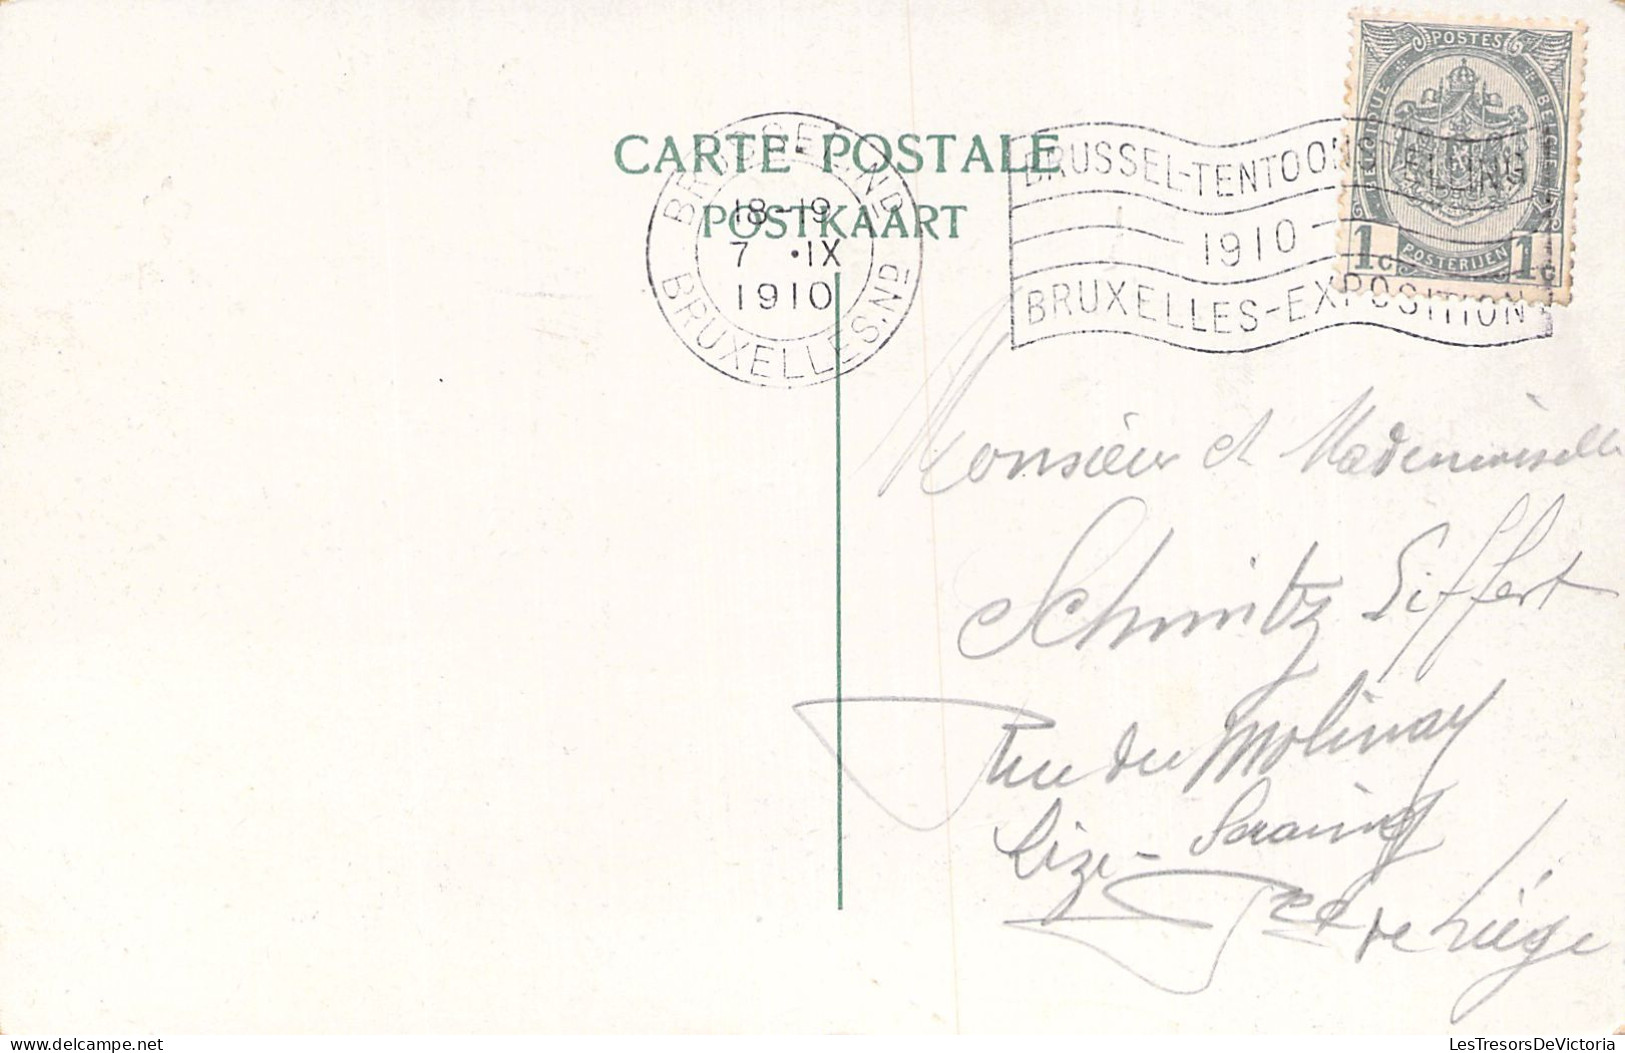 CARTE-POSTALE
POSTKAART
BRUSSEL ND
18-19
7 •IX
1910
BRUXELLES.ND
BRUSSEL-TENTOONSTELLING
1910
BRUXELLES-EXPOSITION
POSTES
BELGIQUE
BELGIË
1c POSTERIJEN 1c
Monsieur et Mademoiselle
Schmitz Siffert
Rue du Molinay
Lize-Seraing
Pce de Liége
LesTresorsDeVictoria.com